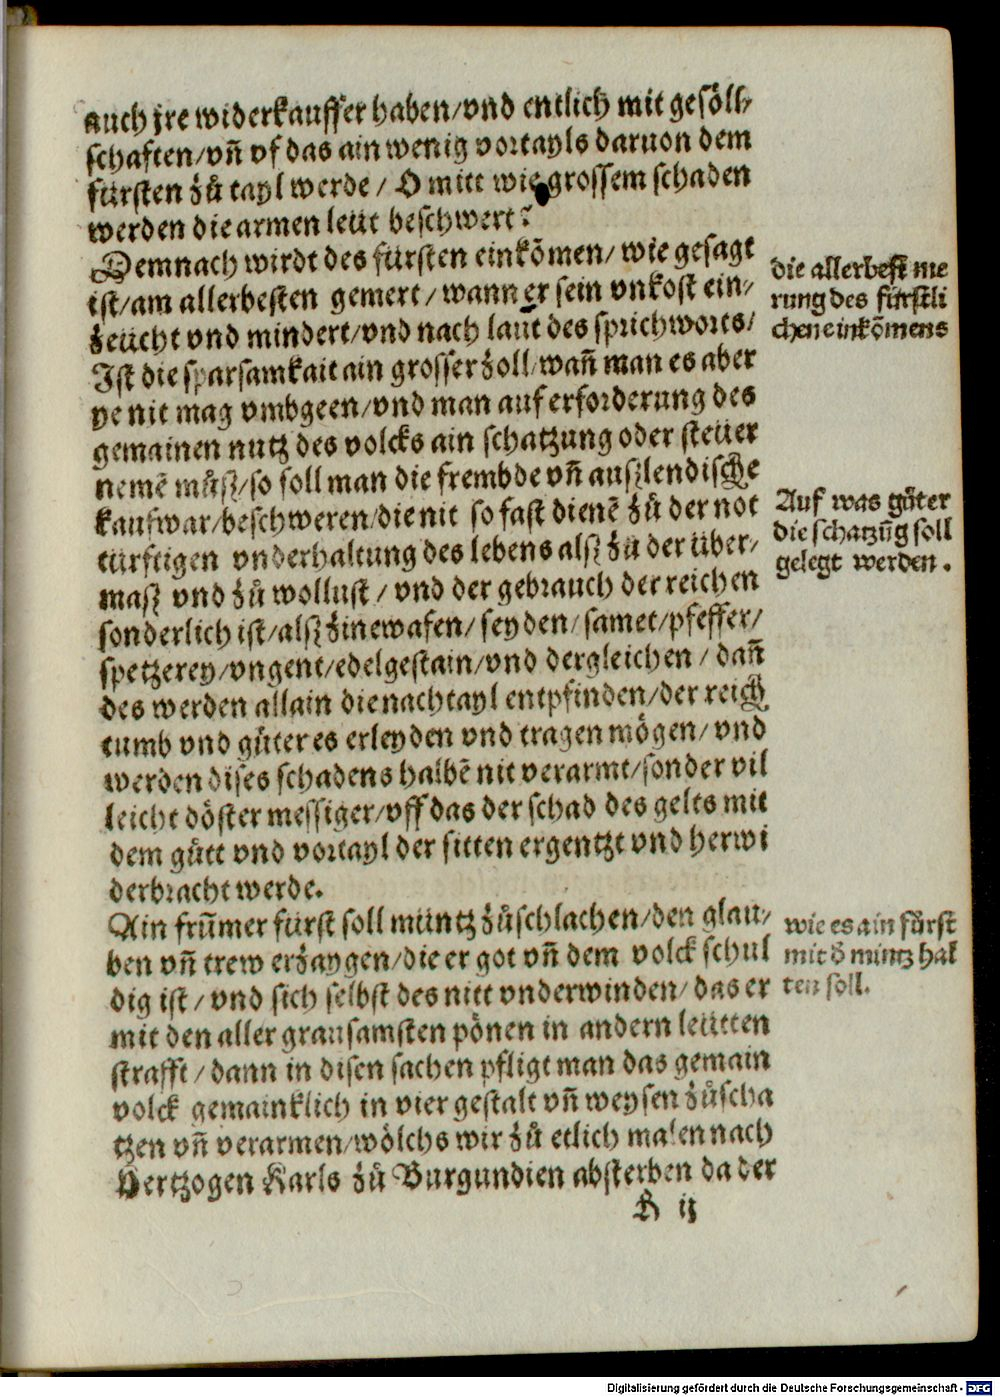 auch jre widerkauffer haben/vnd entlich mit gesöll⸗
schaften/vñ vf das ain wenig vortayls daruon dem
fürsten zů tayl werde / O mitt wie grossem schaden
werden die armen leüt beschwert?
Demnach wirdt des fürsten einkõmen/ wie gesagt
ist/am allerbesten gemert/ wann er sein vnkost ein⸗
zeücht vnd mindert/vnd nach laut des sprichworts/
Ist die sparsamkait ain grosser zoll/wañ man es aber
ye nit mag vmbgeen/vnd man auf erforderung des
gemainen nutz des volcks ain schatzung oder steüer
nemẽ můsz/so soll man die frembde vñ auszlendische
kaufwar/beschweren/die nit so fast dienẽ zů der not
türftigen vnderhaltung des lebens alsz zů der über⸗
masz vnd zů wollust / vnd der gebrauch der reichen
sonderlich ist/alsz zinewafen/ seyden/ samet/pfeffer/
spetzerey/vngent/edelgestain/vnd dergleichen / dañ
des werden allain die nachtayl entpfinden/der reich
tumb vnd gůter es erleyden vnd tragen mögen/ vnd
werden dises schadens halbẽ nit verarmt/sonder vil
leicht döster messiger/vff das der schad des gelts mit
dem gůtt vnd vortayl der sitten ergentzt vnd herwi
derbracht werde.
Ain frũmer fürst soll müntz zůschlachen/den glau⸗
ben vñ trew erzaygen/die er got vñ dem volck schul
dig ist / vnd sich selbst des nitt vnderwinden/ das er
mit den aller grausamsten pönen in andern leütten
strafft / dann in disen sachen pfligt man das gemain
volck gemainklich in vier gestalt vñ weysen zůscha
tzen vñ verarmen/wölchs wir zů etlich malen nach
Hertzogen Karls zů Burgundien absterben da der
H ij
die allerbest me
rung des fürstli
chen einkõmens
Auf was gůter
die schatzũg soll
gelegt werden.
wie es ain fürst
mit d̕ müntz hal
ten soll.
Digitalisierung gefördert durch die Deutsche Forschungsgemeinschaft - DFG